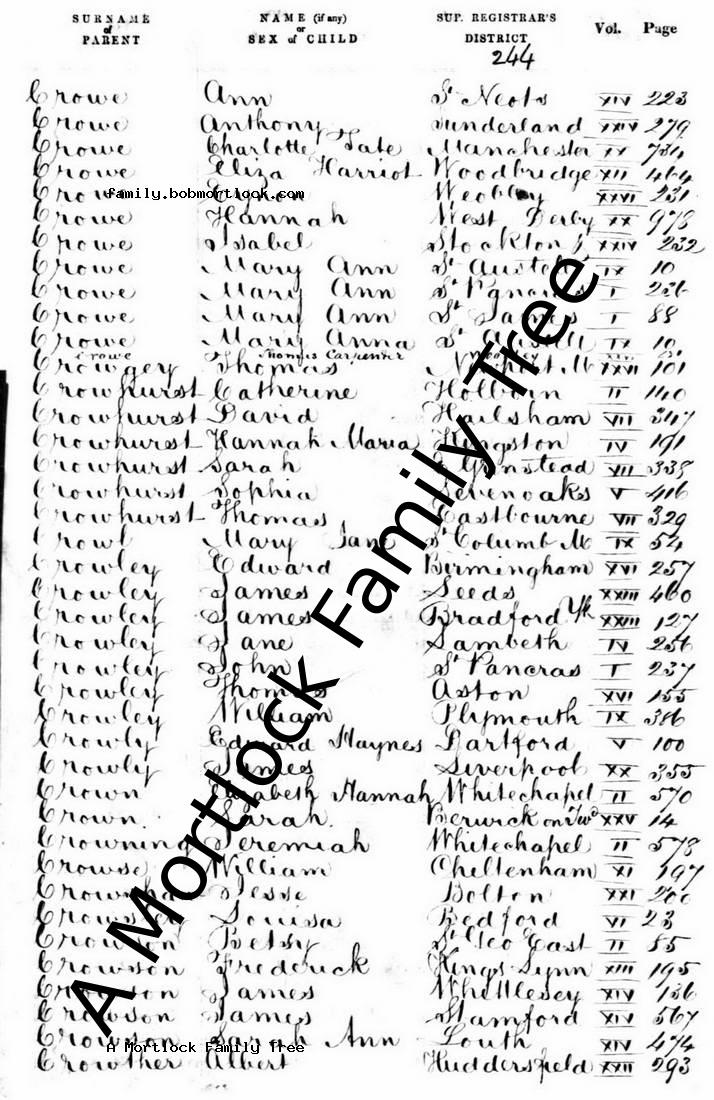 SURNAME of PARENT NAME (if any) or SEX of CHILD SUP. REGISTRAR'S DISTRICT Vol. Page
244
Crowe Ann St Neots XIV 223
Crowe Anthony Sunderland XXIV 279
Crowe Charlotte Tate Manchester XX
Crowe Eliza Harriot Woodbridge XII 464
Crowe Weobley XXVI 231
family.bobmortlock.com
Crowe Hannah West Derby XX 973
Crowe Isabel Stockton XXIV 232
Crowe Mary Ann St Austell IX 10
Crowe Mary Ann St Pancras I 236
Crowe Mary Ann St James I 88
Crowe Mary Anna St Austell IX 10
Crowe Thomas Carpenter Weobley
Crowgey Thomas Newport M XXVI 101
Crowhurst Catherine Holborn II 140
Crowhurst David Hailsham VII 347
Crowhurst Hannah Maria Kingston IV 191
Crowhurst Sarah E Grinstead VII 338
Crowhurst Sophia Sevenoaks V 416
Crowhurst Thomas Eastbourne VII 329
Crowl Mary Jane St Columb M IX 54
Crowley Edward Birmingham XVI 257
Crowley James Leeds XXIII 460
Crowley James Bradford Yk XXIII 127
Crowley Jane Lambeth IV 256
Crowley John St Pancras I 237
Crowley Thomas Aston XVI 155
Crowley William Plymouth IX 386
Crowly Edward Haynes Dartford V 100
Crowly James Liverpool XX 355
Crown Elizabeth Hannah Whitechapel II 570
Crown Sarah Berwick on Twd XXV 14
Crowning Jeremiah Whitechapel II 573
Crowse William Cheltenham XI 197
Jesse Bolton XXI 200
Louisa Bedford VI 23
Crowson Betsy St Geo East II 85
Crowson Frederick Kings Lynn XIII 195
Crowson James Whittlesey XIV 136
Crowson James Stamford XIV 567
Crowson Sarah Ann Louth XIV 474
Crowther Albert Huddersfield XXII 293
A Mortlock Family Tree
A Mortlock Family Tree